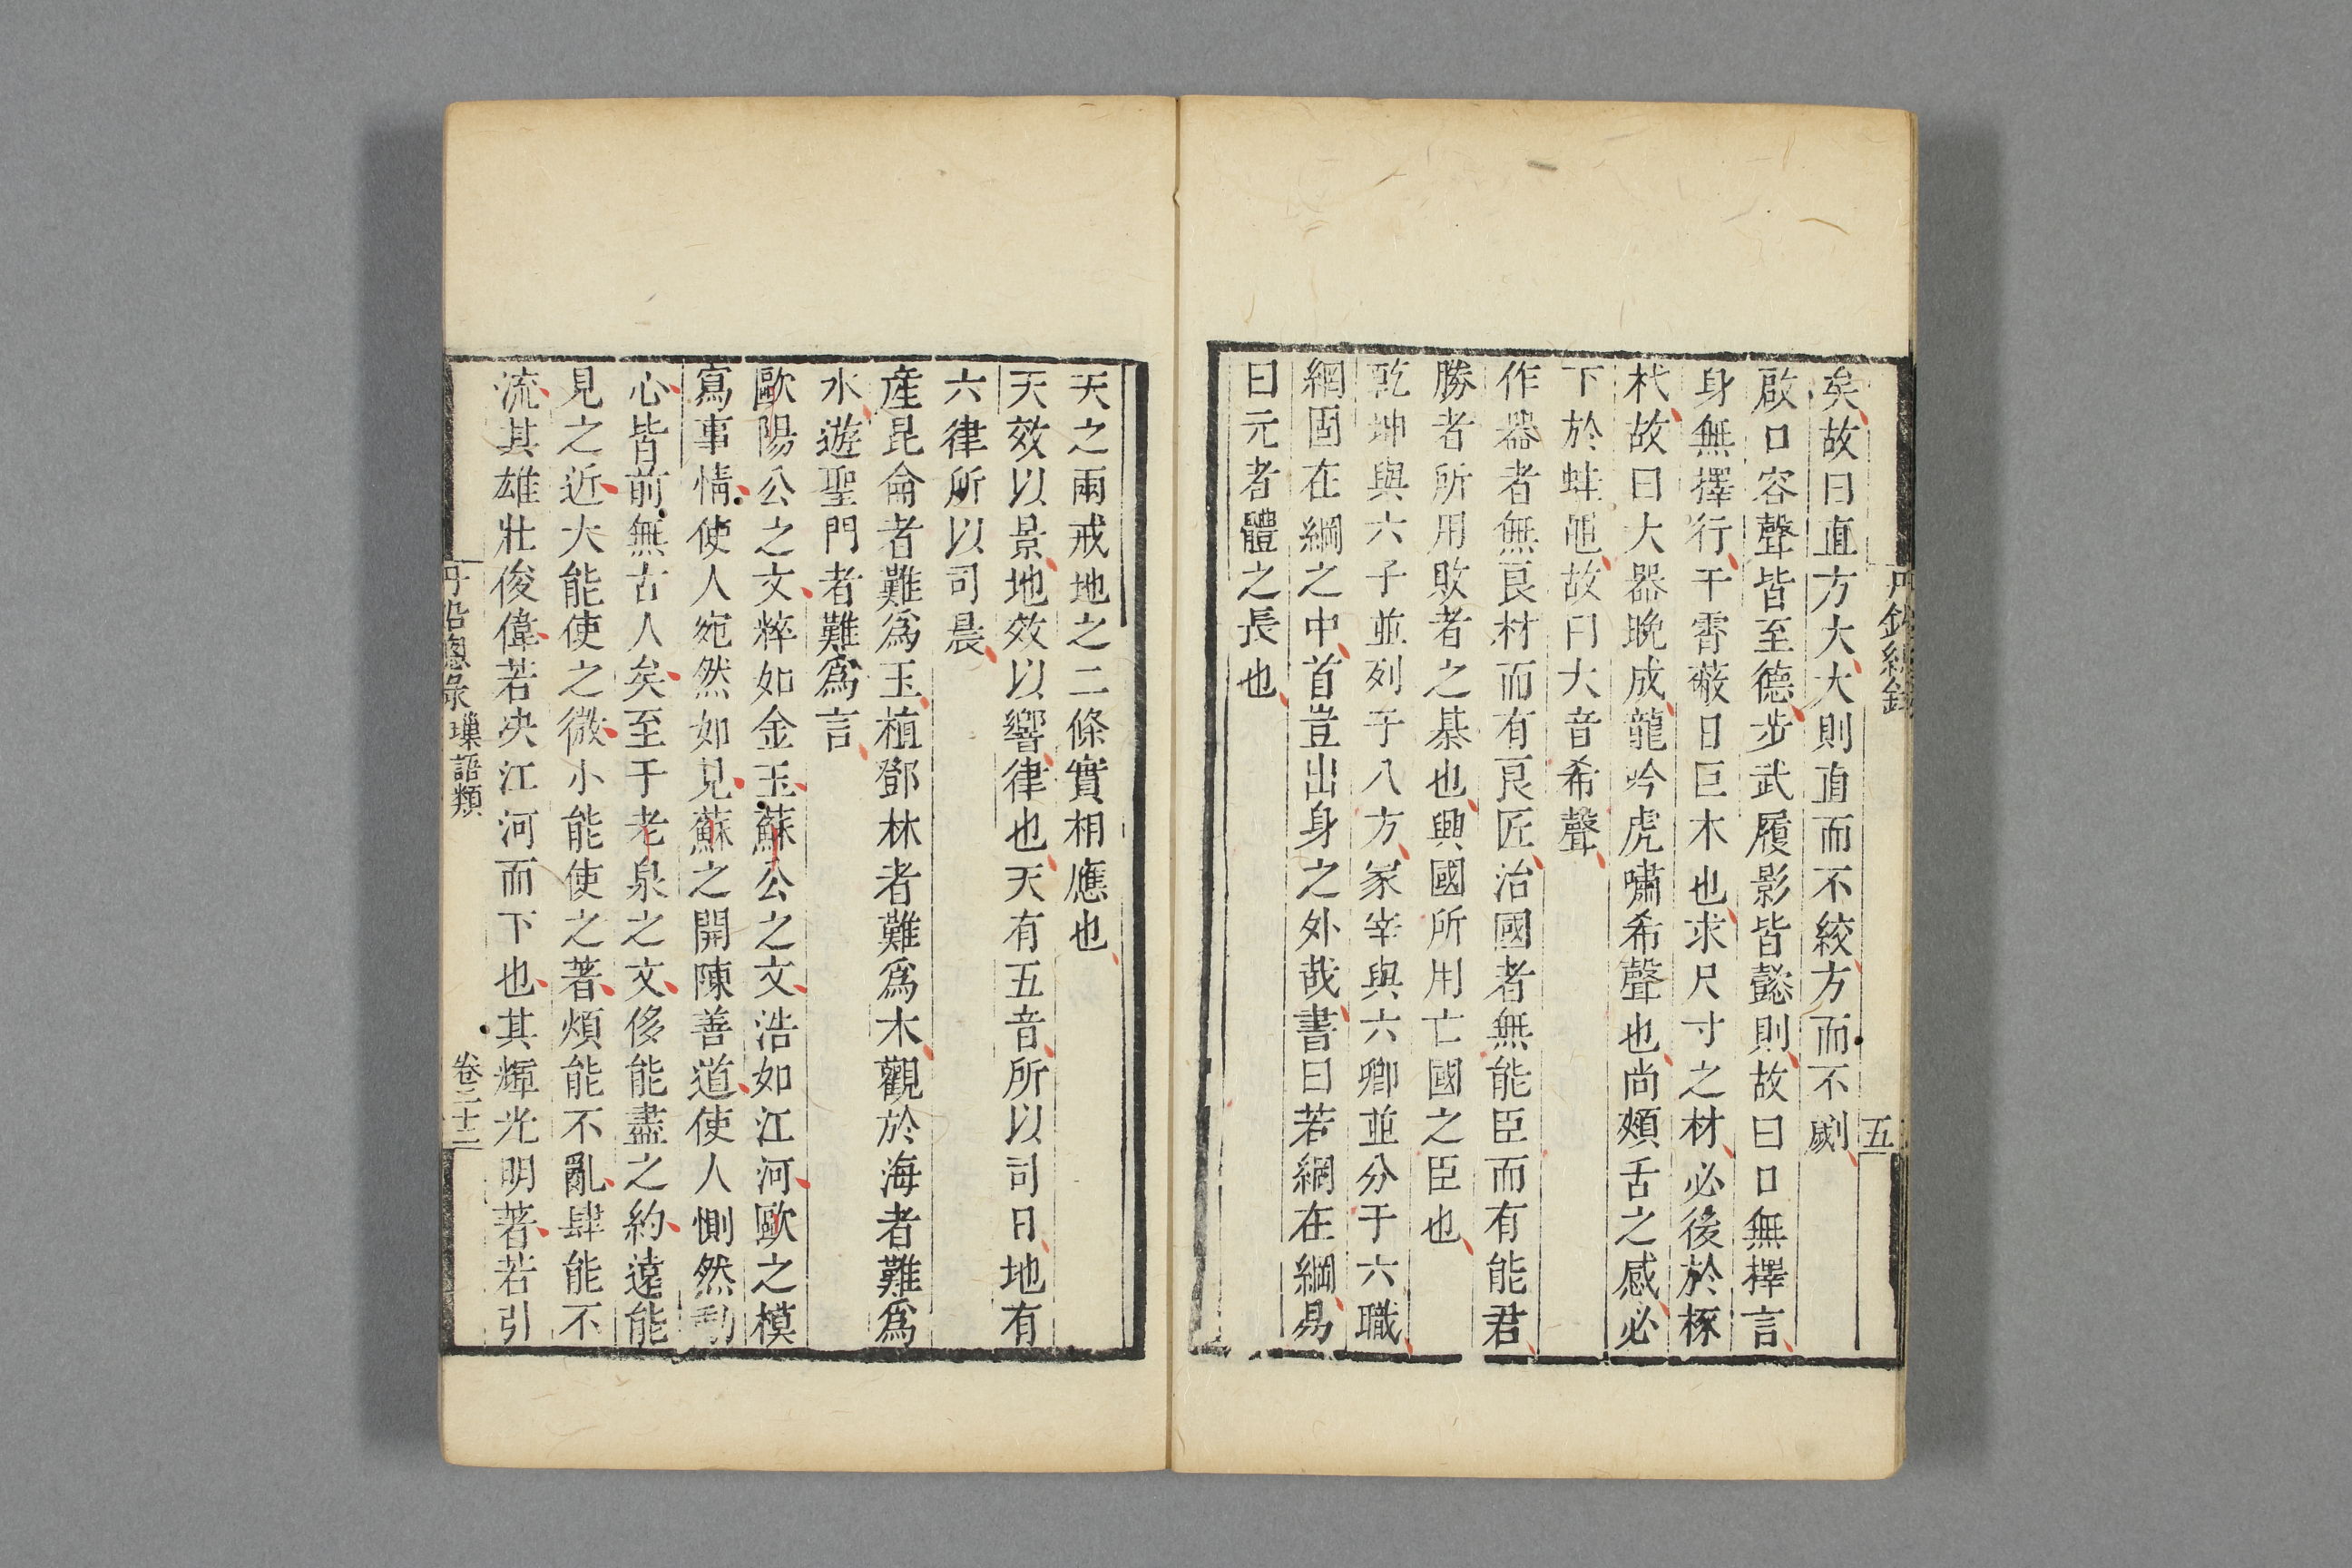 丹鉛總錄
五
矣故曰直方大大則直而不絞方而不劌
啟口容聲皆至德步武履影皆懿則故曰口無擇言
身無擇行干霄蔽日巨木也求尺寸之材必後於椓
杙故曰大器晚成龍吟虎嘯希聲也尚頰舌之感必
下於蛙黽故曰大音希聲
作器者無良材而有良匠治國者無能臣而有能君
勝者所用敗者之棊也興國所用亡國之臣也
乾坤與六子並列于八方冢宰與六卿並分于六職
網固在綱之中首豈出身之外哉書曰若網在綱易
曰元者體之長也
天之兩戒地之二條實相應也
天效以景地效以響律也天有五音所以司日地有
六律所以司晨
產昆侖者難爲玉植鄧林者難爲木觀於海者難爲
水遊聖門者難爲言
歐陽公之文粹如金玉蘇公之文浩如江河歐之模
寫事情使人宛然如見蘇之開陳善道使人惻然動
心皆前無古人矣至于老泉之文侈能盡之約遠能
見之近大能使之微小能使之著煩能不亂肆能不
流其雄壯俊偉若决江河而下也其輝光明著若引
丹鉛總录 瑣語類 卷二十二